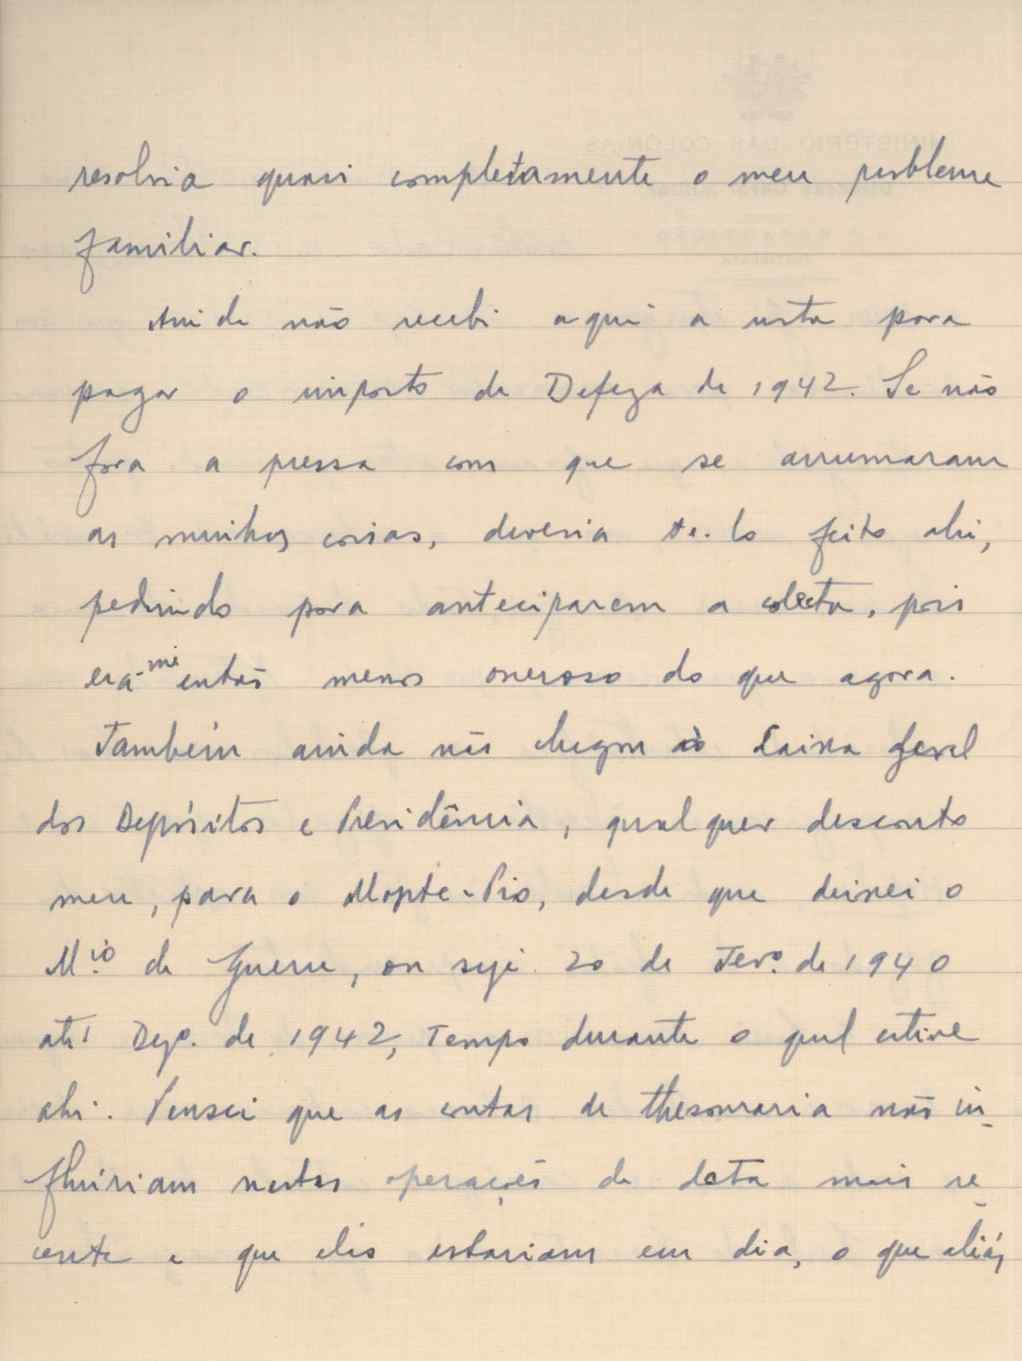 resolvia quasi completamente o meu problema
familiar.
Ainda não recebi aqui a nota para
pagar o imposto de Defeza de 1942. Se não
fora a pressa com que se arrumaram
as minhas coisas, deveria te-lo feito ahi,
pedindo para anteciparem a colecta, pois
era-me então menos oneroso do que agora.
Também ainda não chegou à Caixa Geral
dos Depósitos e Previdência, qualquer desconto
meu, para o Monte-Pio, desde que deixei o
M.io da Guerra, ou seja 20 de Fevº. de 1940
até Dezº. de 1942, tempo durante o qual estive
ahi. Pensei que as contas de thesouraria não in-
fluiriam nestas operações de data mais re-
cente e que elas estariam em dia, o que aliás